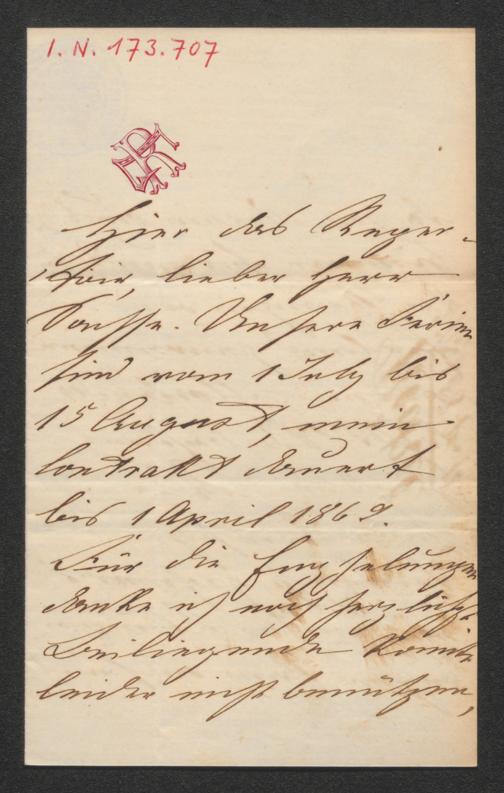 I. N. 173.707
Hier das Reper-
toir, lieber Herr
Sachse. Unsere Ferien
sind vom 1 July bis
15 August, mein
Contrakt dauert
bis 1 April 1869.
Für die Empfehlungen
danke ich noch herzlichst.
Beiliegende konnte
leider nicht benützen,